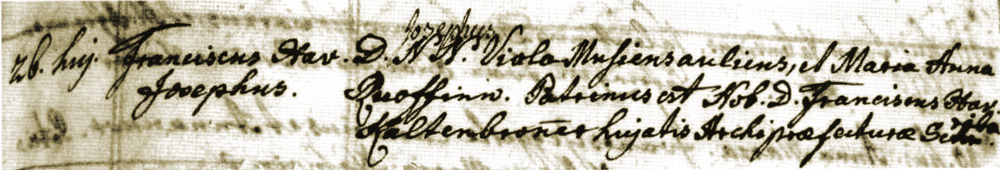 Josephus
26. huj. Franciscus Xav. D. N N. Viola Musicus aulicus, et Maria Anna
Josephus. Ruoffinn. Patrinus est Nob. D. Franciscus Xav.
Kaltenbroñer hujatis Archipræfecturæ